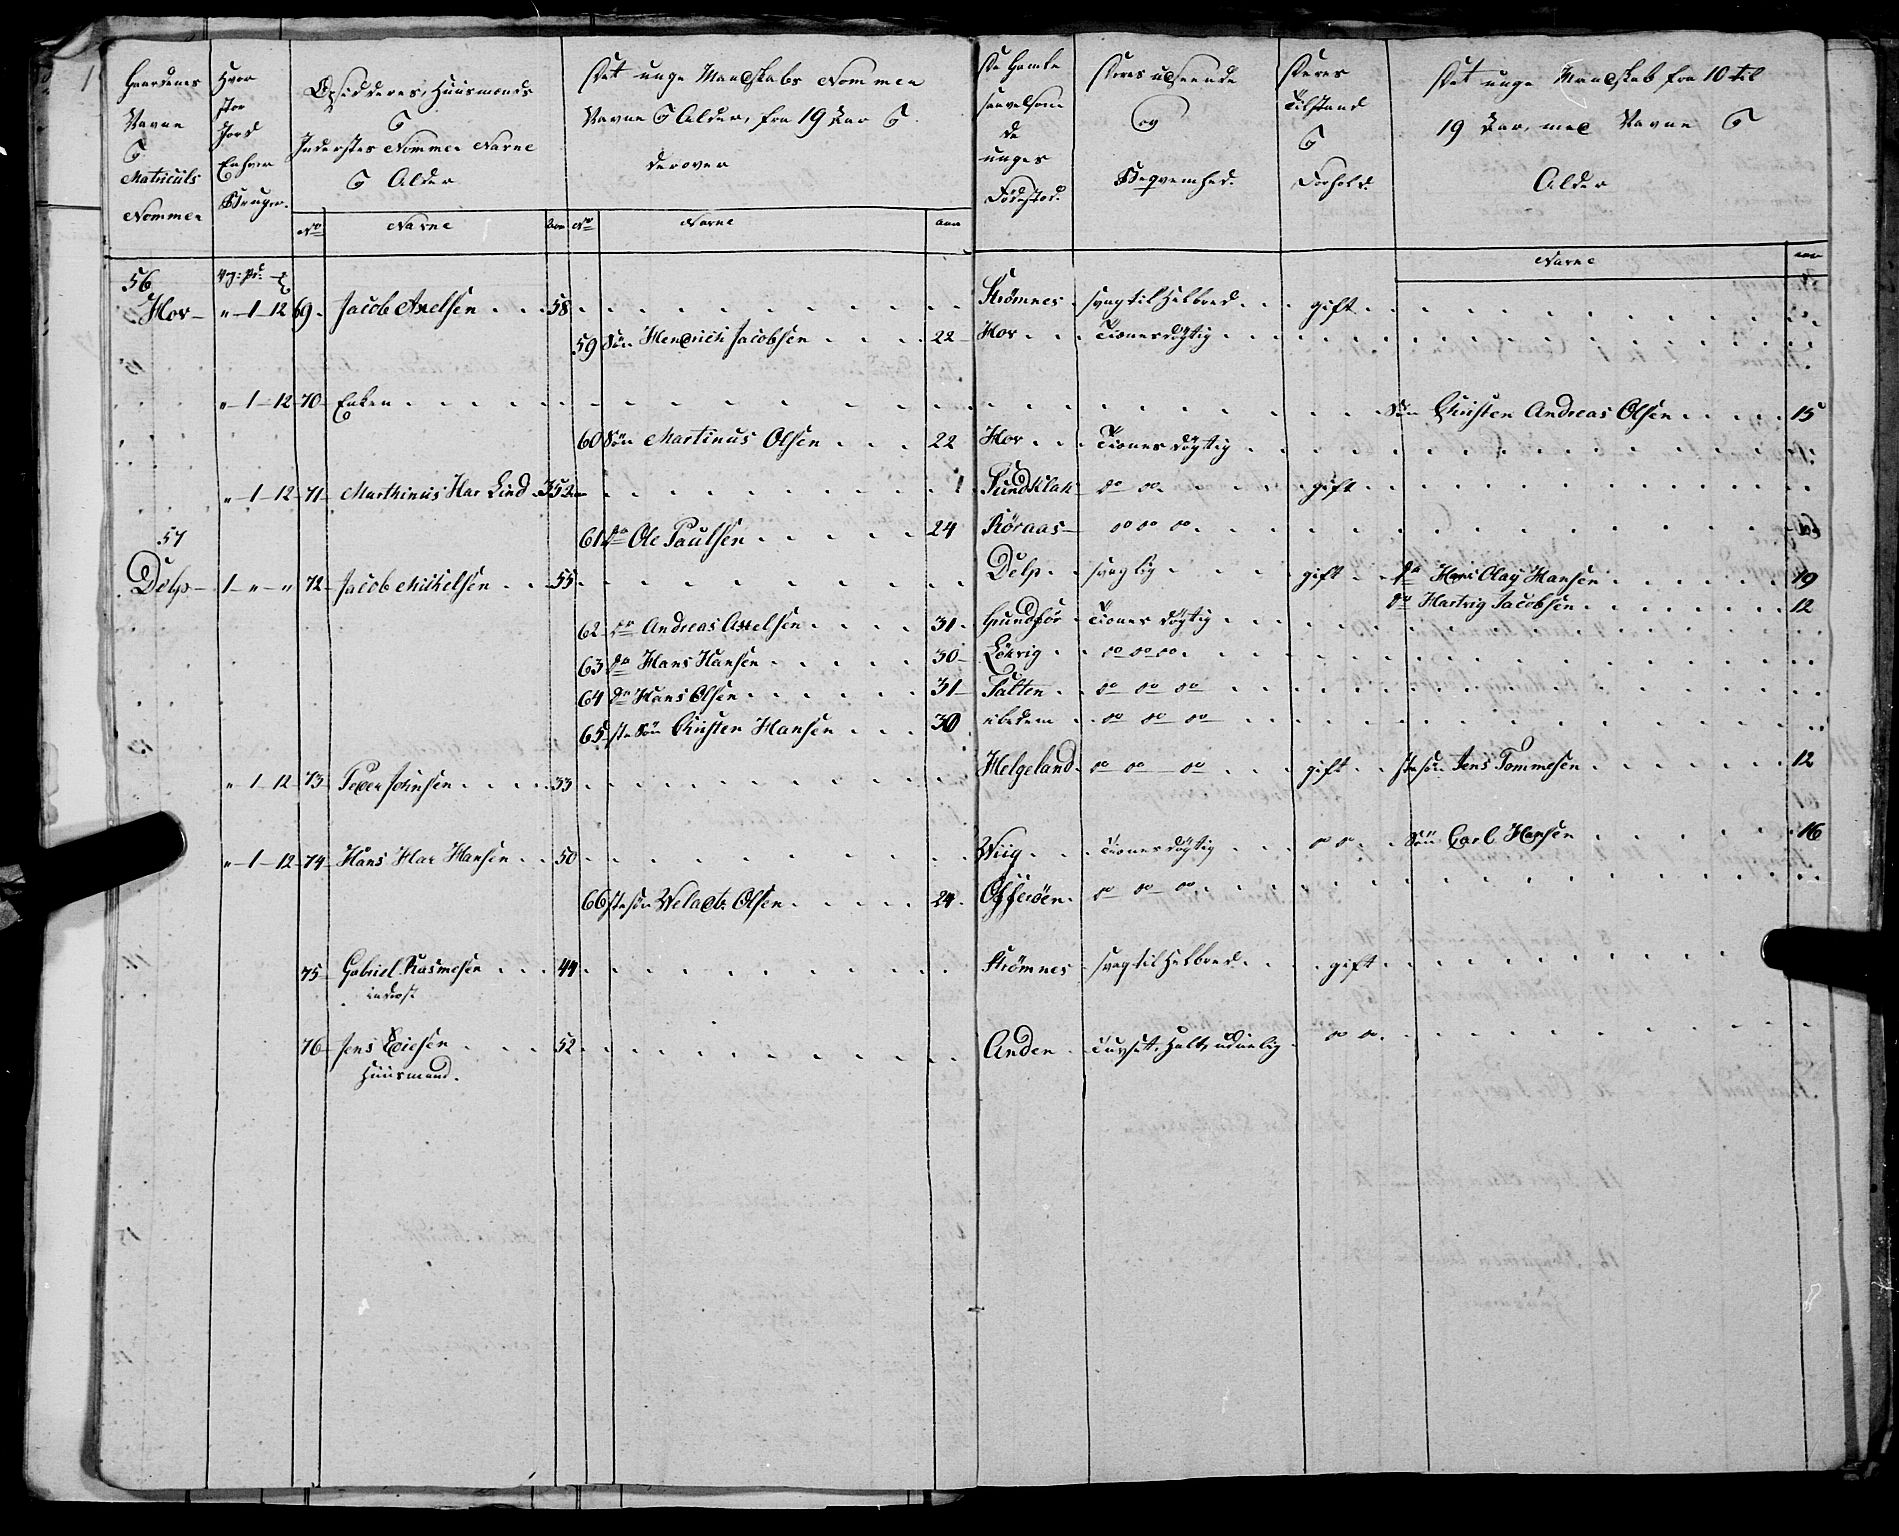 Gaardenes
Navne
&
Matriculs
Nommer
Hvor
stor
Jord
Enhver
Bruger.
Opsidderes, Huusmænds
&
Inderstes Nommer Navne
& Alder
Det unge Mandskabs Nommer
Navne & Alder, fra 19 Aar &
derover
De Gamle
saavelsom
de
unges
Fødested.
Deres udseende
og
Beqvemhed.
Deres
Tilstand
&
Forhold.
Det unge Mandskab fra 10 til
19 Aar, med Navne &
Alder
No Navne Aar No Navne aar
Navne aar
56 Vg: pd:
Hov „ 1 12 69 Jacob Axelsen 58 Strømnes svag til Helbred gift
59 Søn Hendrich Jacobsen 22 Hov Tienesdøgtig
„ 1 12 70 Enken Søn Christen Andreas Olsen 15
60 Søn Martinus Olsen 22 Hov Tienesdøgtig
„ 1 12 71 Marthinus Har Lind 52 Sundklak do do gift
61 do Ole Paulsen 24 Røraas do do do
57
Delp 1 „ „ 72 Jacob Michelsen 55 Delp svaglig gift do Hans Olay Hansen 19
do Hartvig Jacobsen 12
62 do Andreas Axelsen 31 Gundfør Tienesdøgtig
63 do Hans Hansen 30 Løkvig do do do
64 do Hans Olsen 31 Salten do do do
65 ste Søn Christen Hansen 30 ibidem do do do
„ 1 12 73 Peder Johnsen 33 Helgeland do do do gift stesøn Jens Tommesen 12
„ 1 12 74 Hans Har Hansen 50 Wiig Tienesdøgtig do do Søn Carl Hansen 16
66 stesøn Welads Olsen 24 Offersøen do do do
75 Gabriel Rasmesen 44 Strømnes svag til Helbred gift
inderst
76 Jens Eviesen 52 Anden do do
Huusmand.